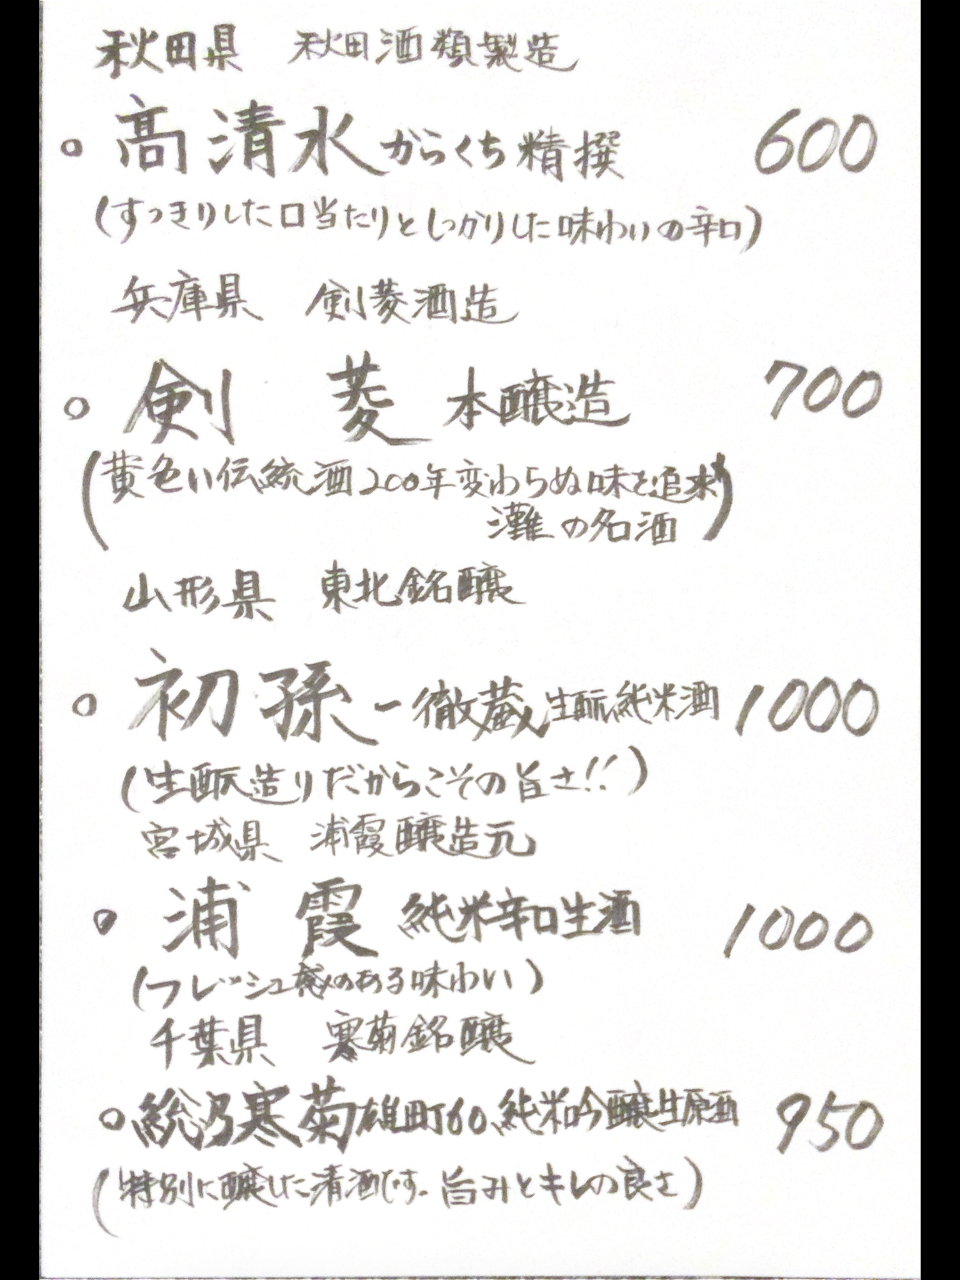 秋田県 秋田酒類製造
○髙清水 からくち 精撰 600
(すっきりした口当たりとしっかりした味わいの辛口)
兵庫県 剣菱酒造
○剣 菱 本醸造 700
(黄色い伝統酒200年変わらぬ味を追求
灘の名酒)
山形県 東北銘醸
○初孫 一徹蔵 生酛純米酒 1000
(生酛造りだからこその旨さ!!)
宮城県 浦霞醸造元
○浦 霞 純米辛口生酒 1000
(フレッシュ感のある味わい)
千葉県 寒菊銘醸
○総乃寒菊 雄町60 純米吟醸生原酒 950
(特別に醸した清酒です。旨みとキレの良さ)